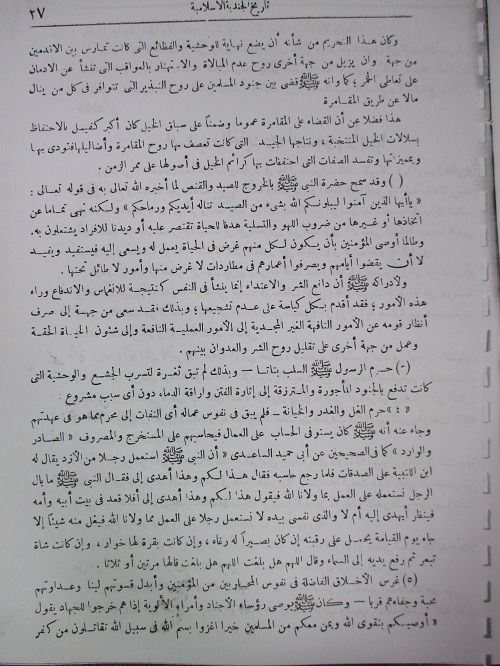 تاريخ الجندية الاسلامية ٢٧
وكان هذا التحريم من شأنه أن يضع نهاية للوحشية والفظائع التى كانت تمارس بين الاقدمين
من جهة وان يزيل من جهة أخرى روح عدم المبالاة والاستهتار بالعواقب التى تنشأ عن الادمان
على تعاطى الخمر ؛ كما وانه ﷺ قضى بين جنود المسلمين على روح التبذير التى تتوافر فى كل من ينال
مالا عن طريق المقامرة
هذا فضلا عن أن القضاء على المقامرة عموما وضمناً على سباق الخيل كان أكبر كفيل بالاحتفاظ
بسلالات الخيل المنتخبة ، ونتاجها الجيد التى كانت تعصف بها روح المقامرة وأضاليلها فتودى بها
وبميزتها وتفسد الصفات التى احتفظت بها كرائم الخيل فى أصولها على ممر الزمن .
( ) وقد سمح حضرة النبى ﷺ بالخروج للصيد والقنص لما أخبره الله تعالى به فى قوله تعالى :
« ياأيها الذين آمنوا ليبلونكم الله بشىء من الصيد تناله أيديكم ورماحكم » ولكنه نهى تماما عن
اتخاذها أو غيرها من ضروب اللهو والتسلية هدفا للحياة تقتصر عليه أو ديدنا للافراد يشتغلون به .
وطالما أوصى المؤمنين بأن يكون لكل منهم غرض فى الحياة يعمل له ويسعى إليه فيستفيد ويفيد
لا أن يقضوا أيامهم ويصرفوا أعمارهم فى مطاردات لا غرض منها وأمور لا طائل تحتها .
ولادراكه ﷺ أن دافع الشر والاعتداء إنما ينشأ فى النفس كنتيجة للانغماس والاندفاع وراء
هذه الأمور ؛ فقد أقدم بكل كياسة على عدم تشجيعها ؛ وبذلك فقد سعى من جهة إلى صرف
أنظار قومه عن الأمور التافهة الغير المجدية إلى الأمور العملية النافعة وإلى شئون الحياة الحقة
وعمل من جهة أخرى على تقليل روح الشر والعدوان بينهم .
(-) حرم الرسول ﷺ السلب بتاتا — وبذلك لم تبق ثغرة لتسرب الجشع والوحشية التى
كانت تدفع بالجنود المأجورة والمرتزقة إلى إثارة الفتن واراقة الدماء دون أى سبب مشروع .
« ٤ » حرم الغل والغدر والخيانة — فلم يبق فى نفوس عماله أى التفات إلى محرم مما هو فى عهدتهم
وجاء عنه أنه ﷺ كان يستوفى الحساب على العمال فيحاسبهم على المستخرج والمصروف « الصادر
والوارد » كما فى الصحيحين عن أبى حميد الساعدى « أن النبى ﷺ استعمل رجلا من الأزد يقال له
ابن اللتبية على الصدقات فلما رجع حاسبه فقال هذا لكم وهذا أهدى إلى فقال النبى ﷺ ما بال
الرجل نستعمله على العمل بما ولانا الله فيقول هذا لكم وهذا أهدى إلى أفلا قعد فى بيت أبيه وأمه
فينظر أيهدى إليه أم لا والذى نفسى بيده لا نستعمل رجلا على العمل مما ولانا الله فيغل منه شيئاً إلا
جاء يوم القيامة يحمل على رقبته إن كان بعيرا له رغاء ، وإن كانت بقرة لها خوار ، وإن كانت شاة
تيعر ثم رفع يديه إلى السماء وقال اللهم هل بلغت اللهم هل بلغت قالها مرتين أو ثلاثا .
(٥) غرس الأخلاق الفاضلة فى نفوس المحاربين من المؤمنين وأبدل قسوتهم لينا وعداوتهم
محبة وجفاءهم قربا — وكان ﷺ يوصى رؤساء الأجناد وأمراء الألوية إذا هم خرجوا للجهاد يقول
« أوصيكم بتقوى الله وبمن معكم من المسلمين خيرا اغزوا بسم الله فى سبيل الله تقاتلون من كفر